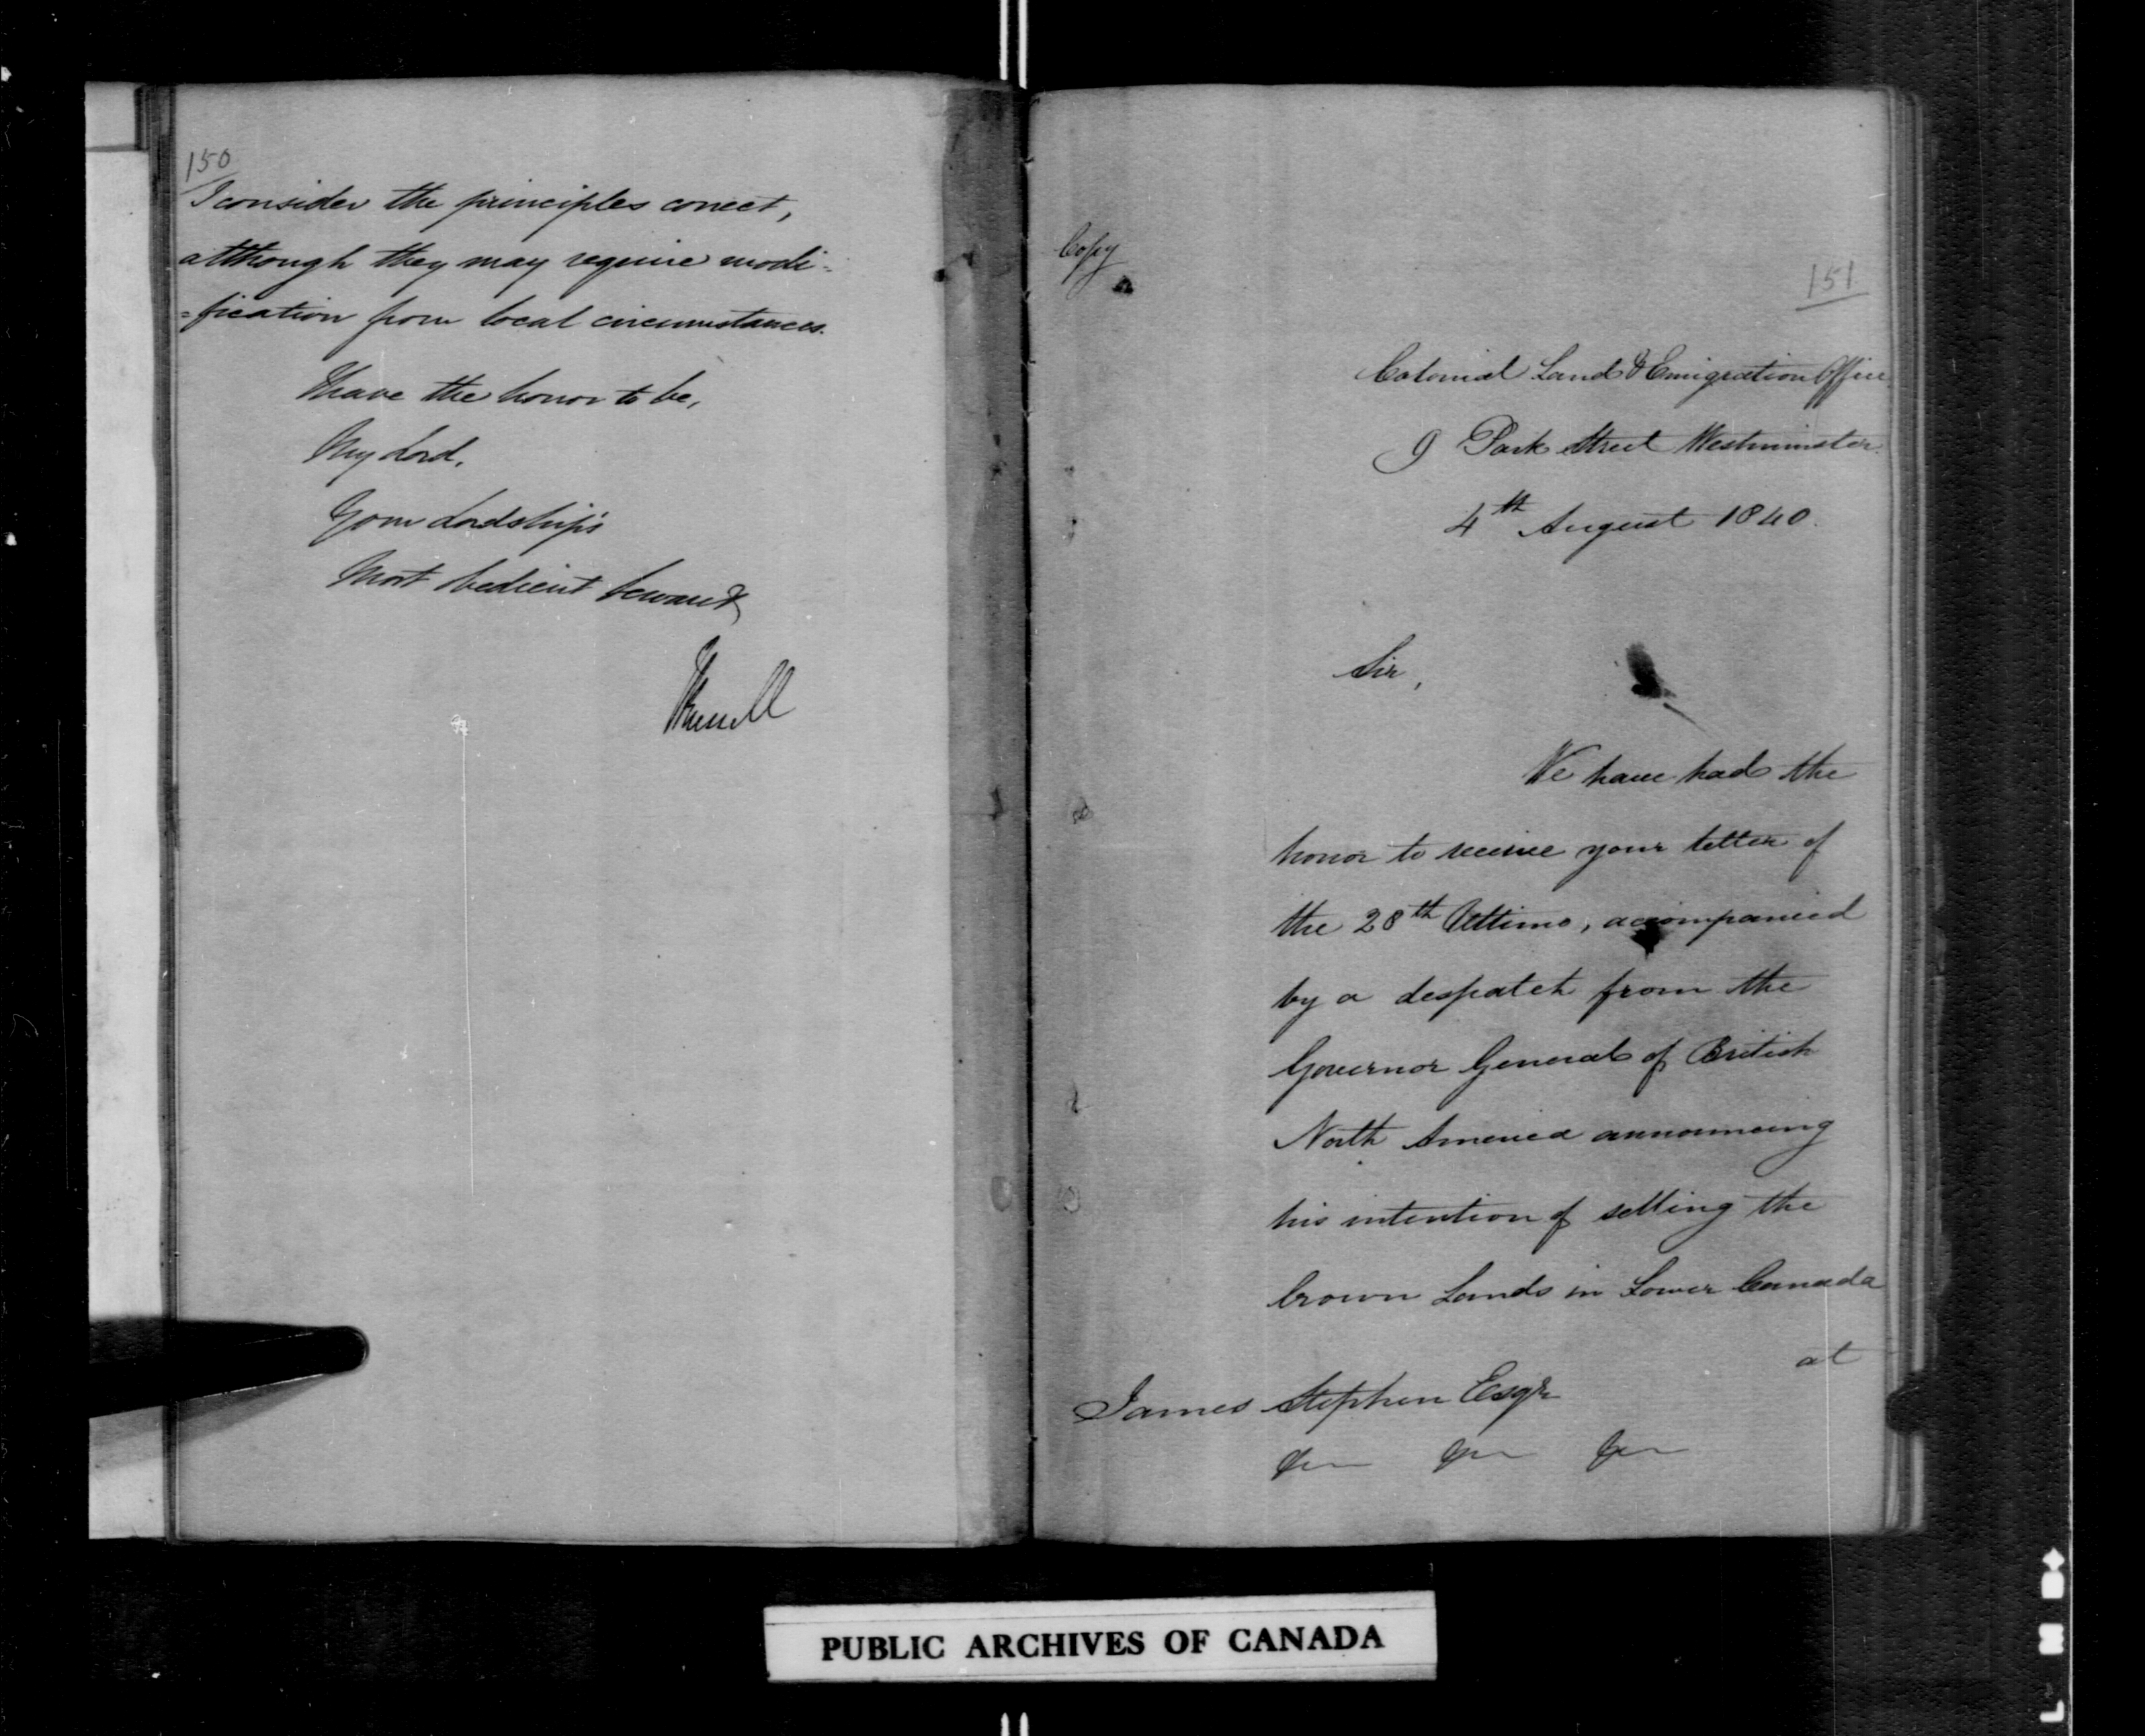 150
I consider the principles correct,
although they may require modi-
=fication from local circumstances.
I have the honor to be,
My Lord,
Your Lordship's
Most obedient Servant
JRussell
Copy
151
Colonial Land & Emigration Office
9 Park Street Westminster.
4th August 1840.
Sir,
We have had the
honor to receive your letter of
the 28th Ultimo, accompanied
by a despatch from the
Governor General of British
North America announcing
his intention of selling the
Crown Lands in Lower Canada
at
James Stephen Esqr
&c &c &c
PUBLIC ARCHIVES OF CANADA